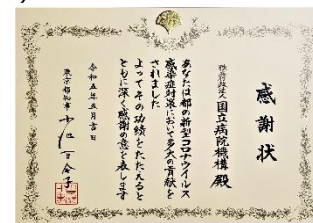 感謝状
独立行政法人 国立病院機構 殿
あなたは都の新型コロナウイルス
感染症対策において多大の貢献を
されました
よってその功績をたたえると
ともに深く感謝の意を表します
令和五年五月吉日
東京都知事 小池百合子